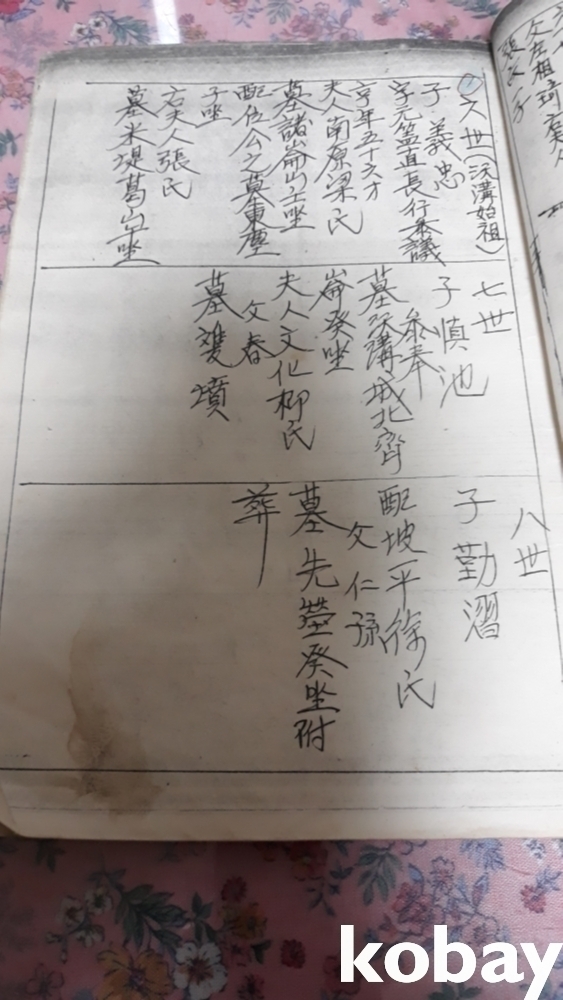 六世(沃溝始祖)
子 義忠
字元 直長行參議
享年五十六才
夫人南原梁氏
墓諸崙山壬坐
配位公之墓東麓
子坐
右夫人張氏
墓米堤葛山坐
七世
子 慎池
參奉
墓沃溝城北齊
崙癸坐
夫人文化柳氏
父春
墓雙墳
八世
子 勤溜
配坡平徐氏
父 仁孫
墓先塋癸坐附
葬
kobay